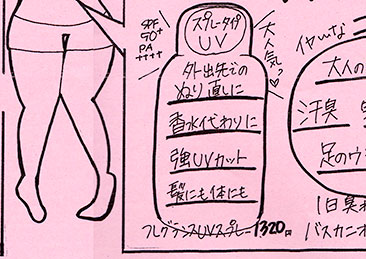 SPF
50+
PA
++++
スプレータイプ
UV
大人気っ♡
外出先での
ぬり直しに
香水代わりに
強UVカット
髪にも体にも
フレグランスUVスプレー 1320円
イヤ〜な
大人の
汗臭
足のウ
1日臭わ
バスカニオ